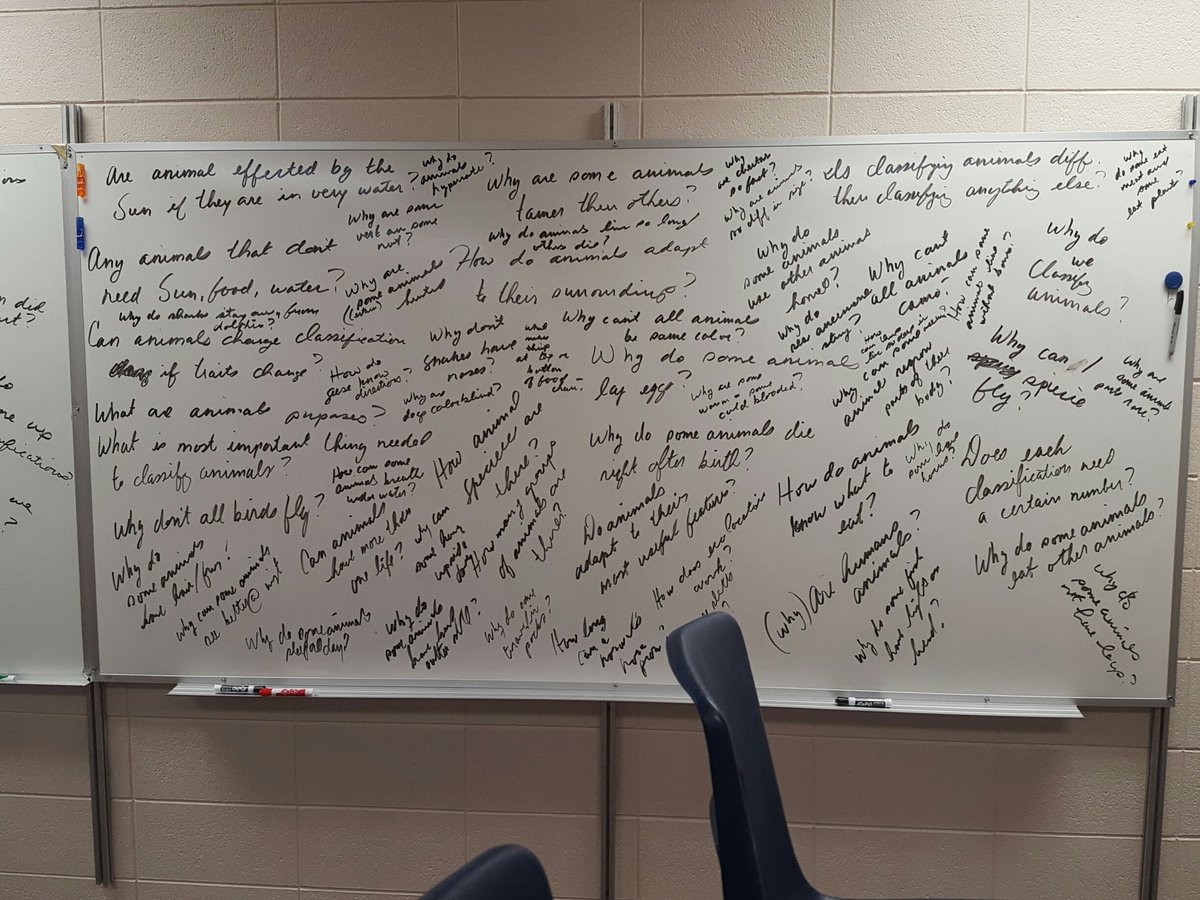 ions
did
t?
to
up
ifications?
we
?
Are animal effected by the
Sun if they are in very water?
why do
animals
hypernate?
Why are some animals
tamer then others?
Why
are cheetas
so fast?
Why are animals
so diff in size?
Is classifying animals diff
then classifying anything else?
Why
do some eat
meat and
some
eat plants?
Why are some
vert an some
not?
Why do animas live so long
others die?
Any animals that don't
need Sun, food, water?
Why do sharks stay away from
dolphins?
Why are
some animals
hunted
How do animals adapt
to their surroundings?
Why do
some animals
use other animas
home?
Why can't
all animals
camo-
How can some
animal live
without bone?
Why do
we
Classify
animals?
Can animals change classification
if traits change?
How do
geese know
directions?
Why don't
snakes have
noses?
what
makes
thing
at top or
button
of food
chain.
Why can't all animals
be same color?
Why do some animal
lay egg?
Why are some
warm + some
cold blooded?
Why can some
animal regrow
part of their
body?
Why can 1
specie
fly?
Why are
some animals
more rare?
What are animals purposes?
Why are
dogs colorblind?
What is most important thing needed
to classify animals?
How can some
animals breath
under water?
How animal
species are
there?
Why do some animals die
right after birth?
How do animals
know what to
eat?
Why do
some have
horns?
Does each
classification need
a certain number?
Why don't all birds fly?
Can animals
have more then
one life?
Why can
some hang
upside
down
How many groups
of animals are
there?
Do animals
adapt to their
most useful feature?
Why do some animals
eat other animals?
Why do
some animals
have hair/fur?
Why can some animals
see better @ night
Why do some animals
sleep all day?
Why do
some animals do
have hard
outer shell?
Why do some
travel in
packs?
How long
can a
horns
grow?
How does eco location
work?
(Why) Are humans
animals?
Why do some bird
have big feet or
head?
Why do
some animles
not have legs?
EXPO
EXPO
EXPO